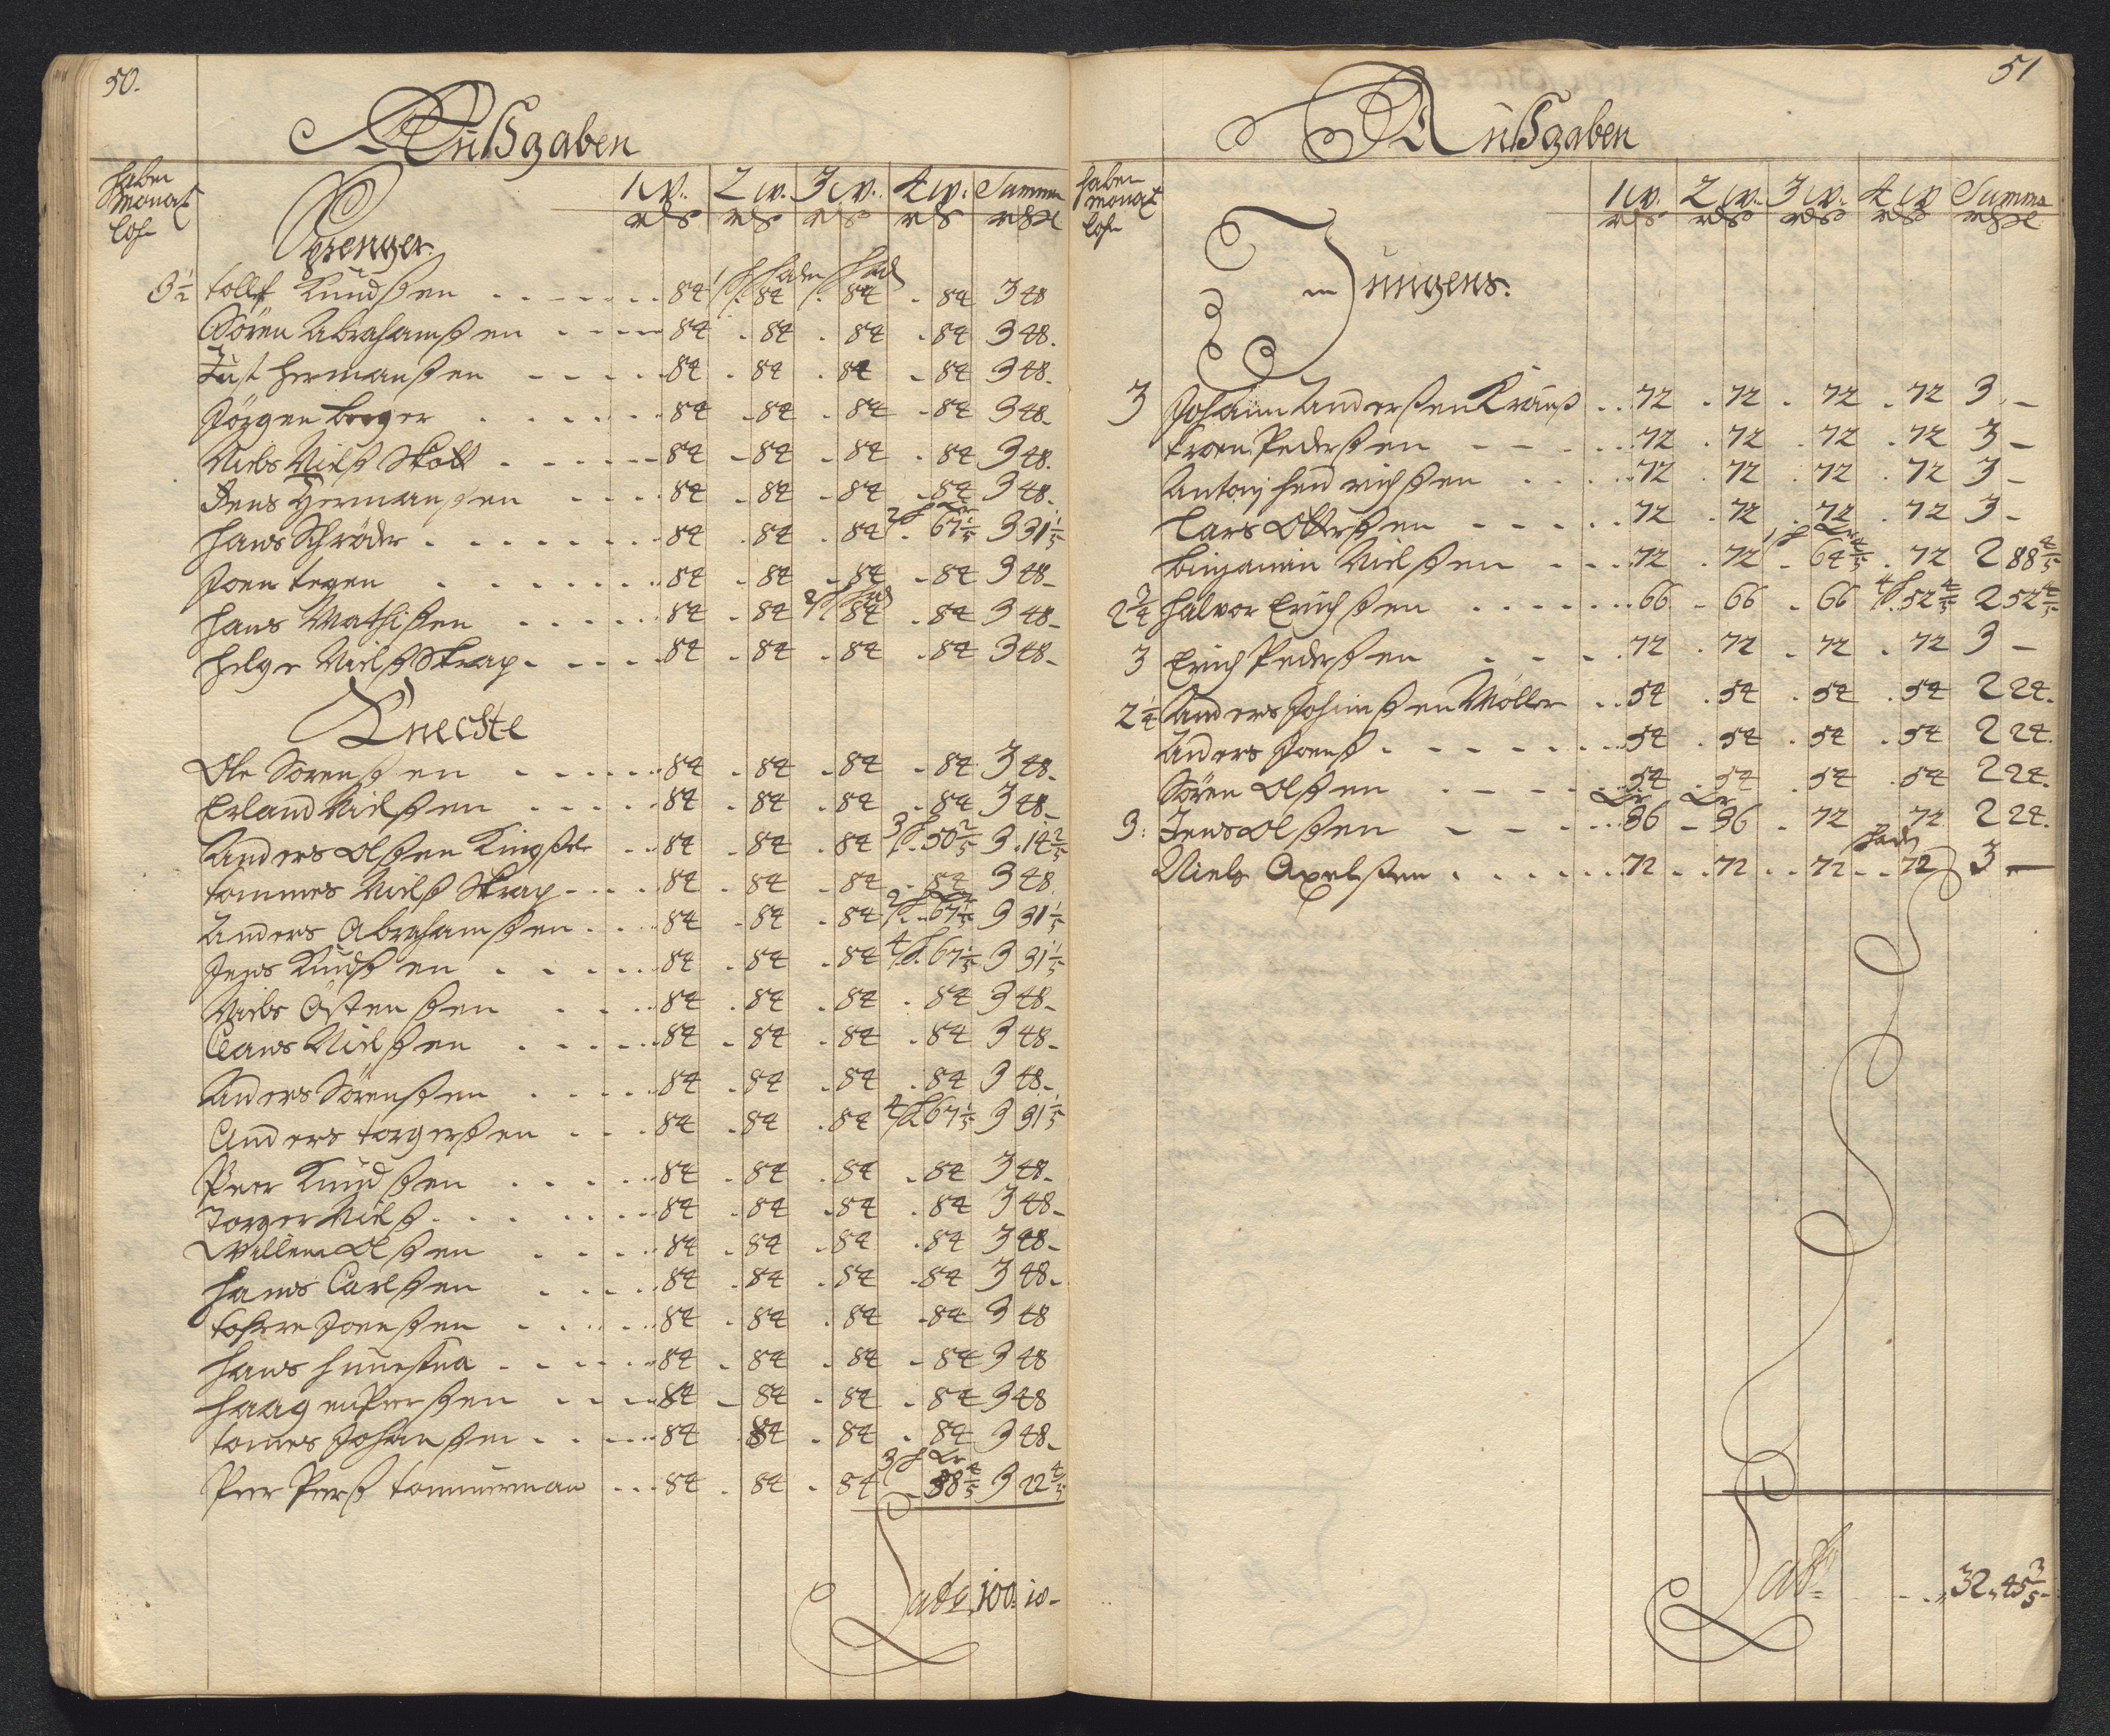 50.
Außgaben
haben
Monat
lohn
1 W. 2 W. 3 W. 4 W: Summa
rd ß rd ß rd ß rd ß
Sprenger.
3 1/2 tollef Knudßen 84 84 84 84 3 48
Sören Abrahamßen 84 84 84 84 3 48.
Just Hermanßen 84 84 84 84 3 48.
Jörgen berger 84 84 84 84 3 48.
Niels Nielß Skott 84 84 84 84 3 48.
Jens Hermanßen 84 84 84 84 3 48.
Hans Schröder 84 84 84 67 1/5 3 31 1/5
Joen tegen 84 84 84 84 3 48
Hans Mathißen 84 84 84 84 3 48
Helge Nielß Skrap 84 84 84 84 3 48
Knechte
Ole Sorenßen 84 84 84 84 3 48
Erland Nielßen 84 84 84 84 3 48
Anders Olßen Kingßel 84 84 84 50 2/5 3 14 2/5
tommes Nielß Skrap 84 84 84 84 3 48
Anders Abrahamßen 84 84 84 67 1/5 3 31 1/5
Jens Knudßen 84 84 84 67 1/5 3 31 1/5
Niels Östenßen 84 84 84 84 3 48
Claus Nielßen 84 84 84 84 3 48
Anders Sörenßen 84 84 84 84 3 48
Anders torgerßen 84 84 84 67 1/5 3 31 1/5
Peer Knudßen 84 84 84 84 3 48
Torger Nielß 84 84 84 84 3 48
Willem Olßen 84 84 84 84 3 48
Hans Carlßen 84 84 84 84 3 48
Joenßen 84 84 84 84 3 48
Hans 84 84 84 84 3 48
Haagen Peerßen 84 84 84 84 3 48
tomes Johanßen 84 84 84 84 3 48
Peer Peerß tommerman 84 84 84 58 4/5 3 22 4/5
Lats 100: 10
51
Außgaben
haben
Monat
lohn
1 W. 2 W. 3 W. 4 W Summa
rd ß rd ß rd ß rd ß
Jungens.
3 Johann Anderßen Krauß 72 72 72 72 3 -
Pederßen 72 72 72 72 3 -
Antonj Hendrichßen 72 72 72 72 3 -
Lars Olberßen 72 72 72 72 3 -
Binjamin Nielßen 72 72 64 4/5 72 2 88 4/5
2 3/4 Halvor Erichßen 66 66 66 52 4/5 2 52 4/5
3 Erich Pederßen 72 72 72 72 3 -
2 1/4 Anders Johanßen Möller 54 54 54 54 2 24.
Anders Joenß 54 54 54 54 2 24.
Sören Olßen 54 54 54 54 2 24.
3: Jens Olßen 36 36 72 72 2 24.
Niels Axelßen 72 72 72 72 3 -
Lats 32 45 3/5